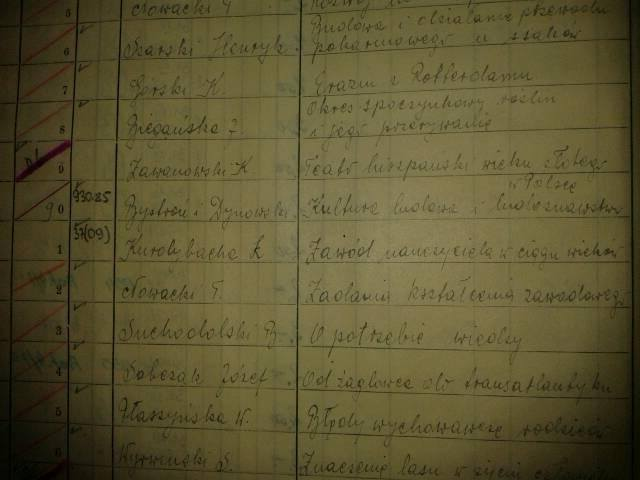 Nowacki T.
6 Szarski Henryk. Budowa i działanie przewodu
pokarmowego u ssaków
7 Górski K. Erazm z Rotterdamu
8 Biegańska J. Okres spoczynkowy roślin
i jego przerywanie
9 Zawanowski K Teatr hiszpański wieku złotego
w Polsce
90 930.85 Bystroń i Dynowska. Kultura ludowa i ludoznawstwo
1 37(09) Kurdybacha Ł Zawód nauczyciela w ciągu wieków
2 Nowacki T. Zadania kształcenia zawodowego
3 Suchodolski B. O potrzebie wiedzy
4 Sobczak Józef. Od żaglowca do transatlantyku
5 W. Błędy wychowawcze rodziców
6 S. Znaczenie lasu w życiu